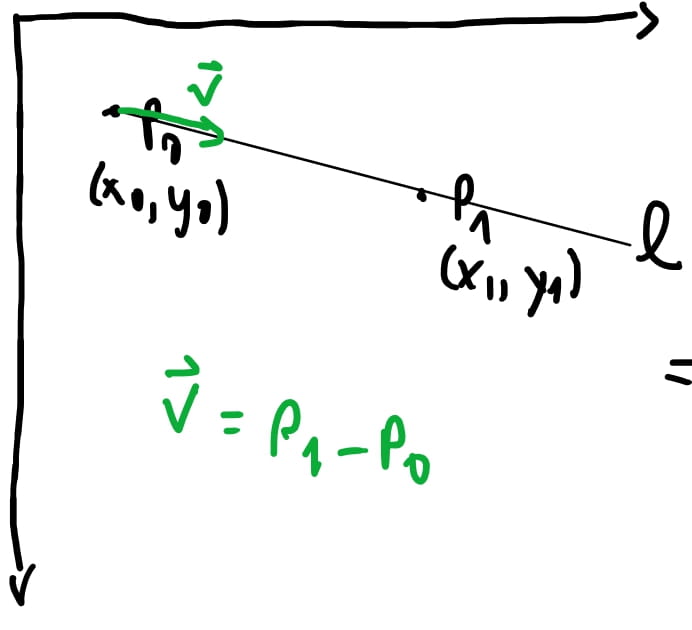 v⃗
P₀
(x₀, y₀)
P₁
(x₁, y₁)
ℓ
=
v⃗ = P₁ - P₀